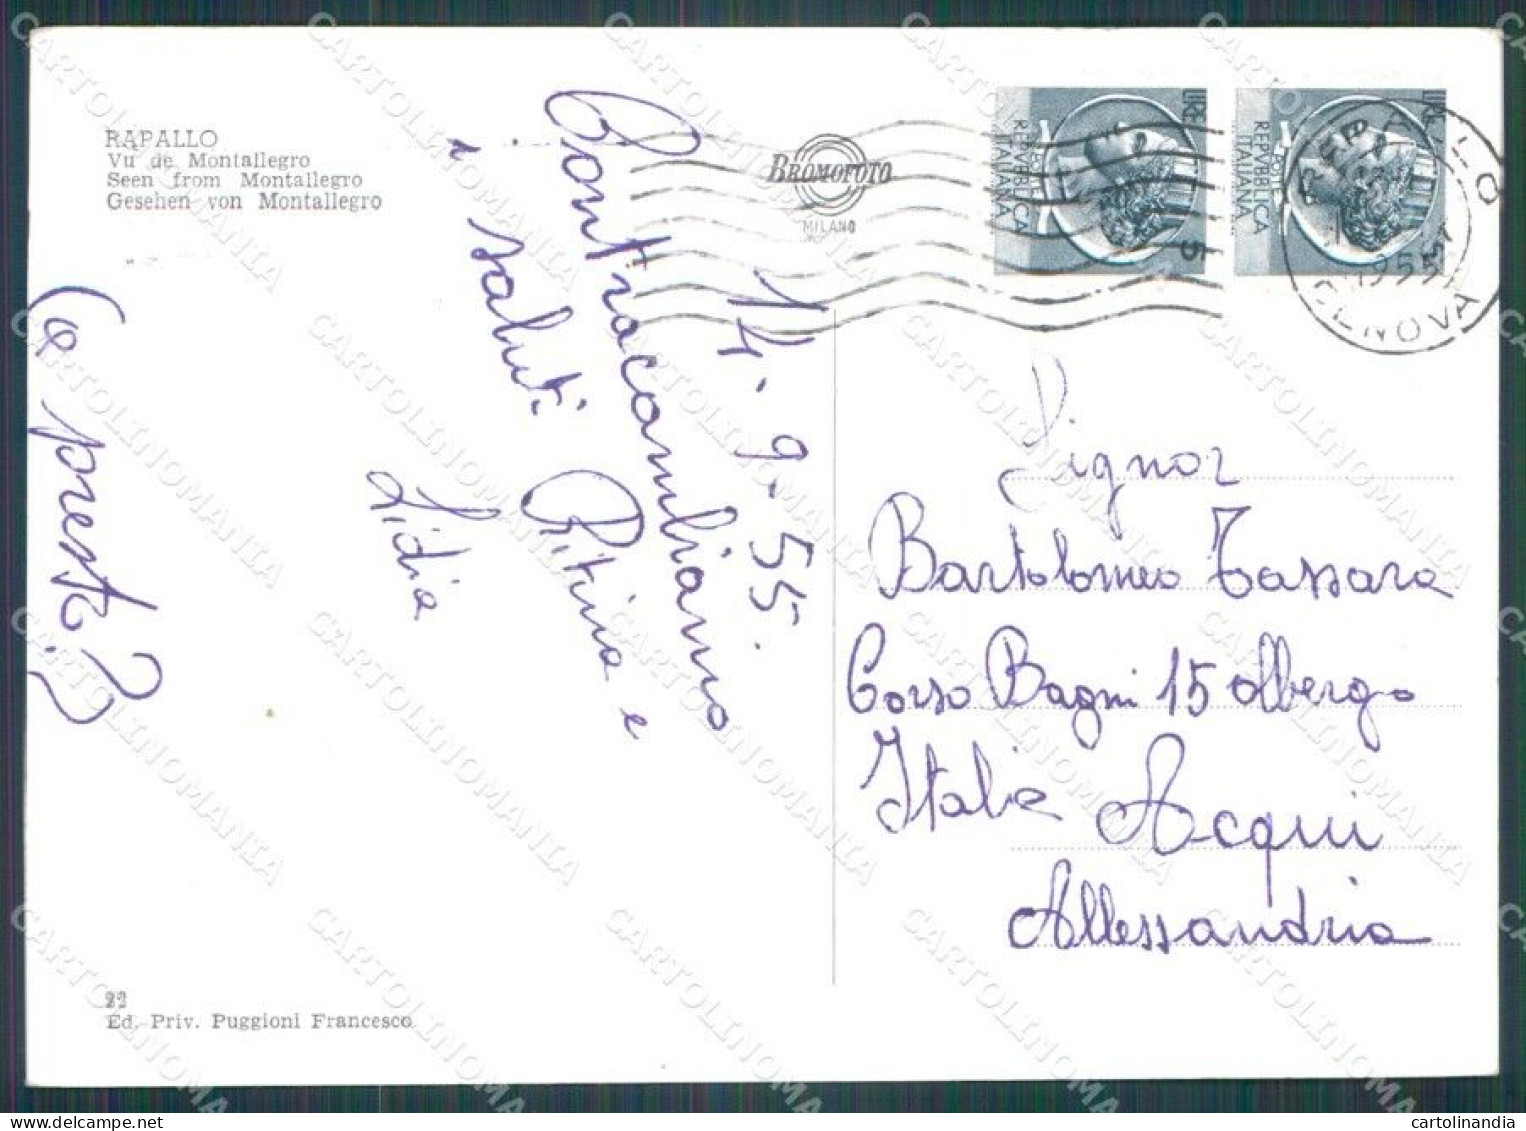 RAPALLO
Vu de Montallegro
Seen from Montallegro
Gesehen von Montallegro
BROMOFOTO
MILANO
LIRE
REPVBBLICA
ITALIANA
5
REPVBBLICA
ITALIANA
GENOVA
14. 9. 55.
Contraccambiamo
i saluti
Ritina e
Lidia
(a presto?)
Signor
Bartolomeo Tassara
Corso Bagni 15 Albergo
Italia Acqui
Allessandria
22
Ed. Priv. Puggioni Francesco
CARTOLINOMANIA
cartolinandia